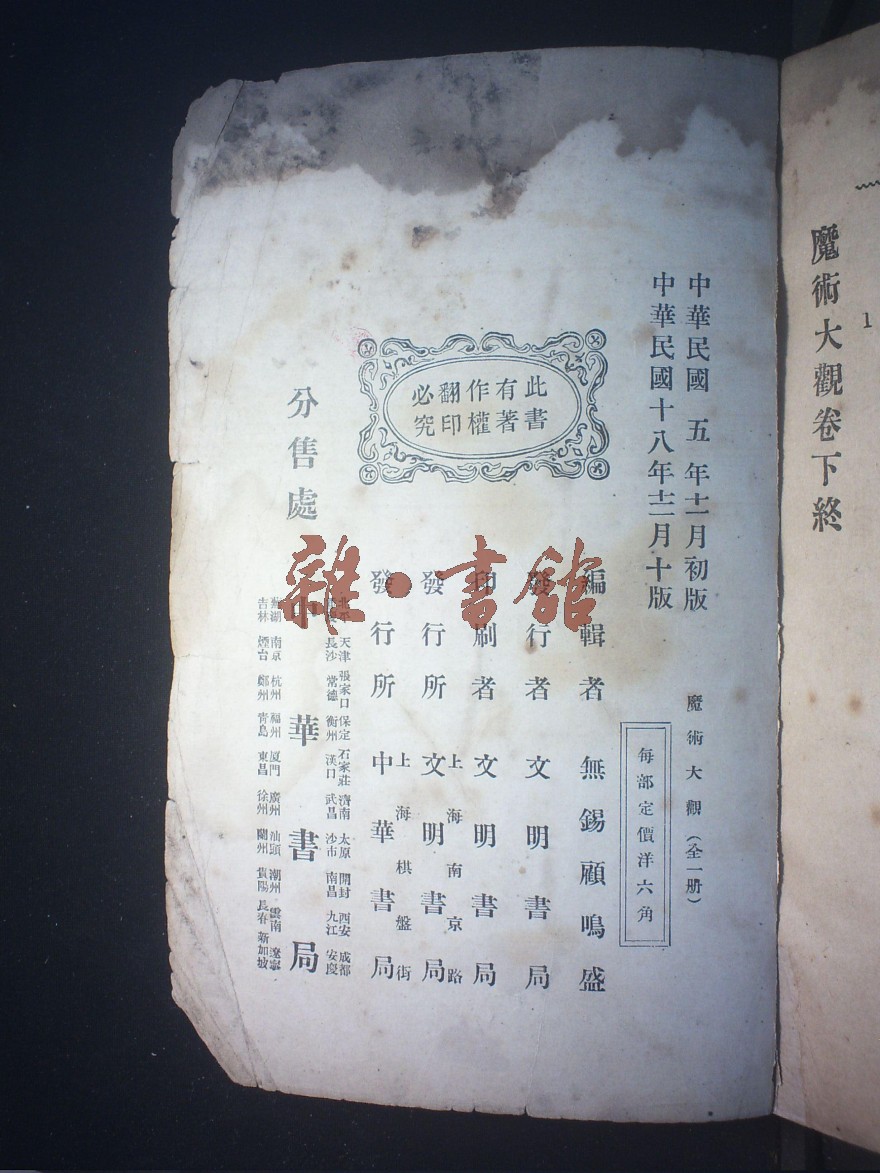 魔術大觀卷下終
1
中華民國五年十一月初版
中華民國十八年十二月十版
魔術大觀（全一册）
每部定價洋六角
此書
有著
作權
翻印
必究
編輯者 無錫顧鳴盛
發行者 文明書局
印刷者 文明書局
上海南京路
發行所 文明書局
上海棋盤街
發行所 中華書局
分售處 中華書局
天津 張家口 保定 石家莊 濟南 太原 開封 西安 成都
長沙 常德 衡州 漢口 武昌 沙市 南昌 九江 安慶
蕪湖 南京 杭州 福州 厦門 廣州 汕頭 潮州 雲南 遼寧
吉林 煙台 鄭州 青島 東昌 徐州 蘭州 貴陽 長春 新加坡
雜·書館